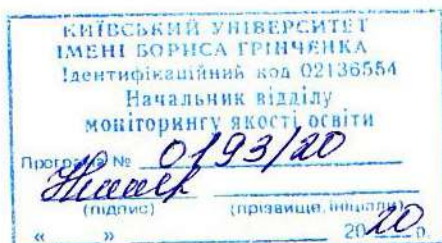 КИЇВСЬКИЙ УНІВЕРСИТЕТ
ІМЕНІ БОРИСА ГРІНЧЕНКА
Ідентифікаційний код 02136554
Начальник відділу
моніторингу якості освіти
Програма № 0193/20
(підпис) (прізвище, ініціали)
« » 2020 р.